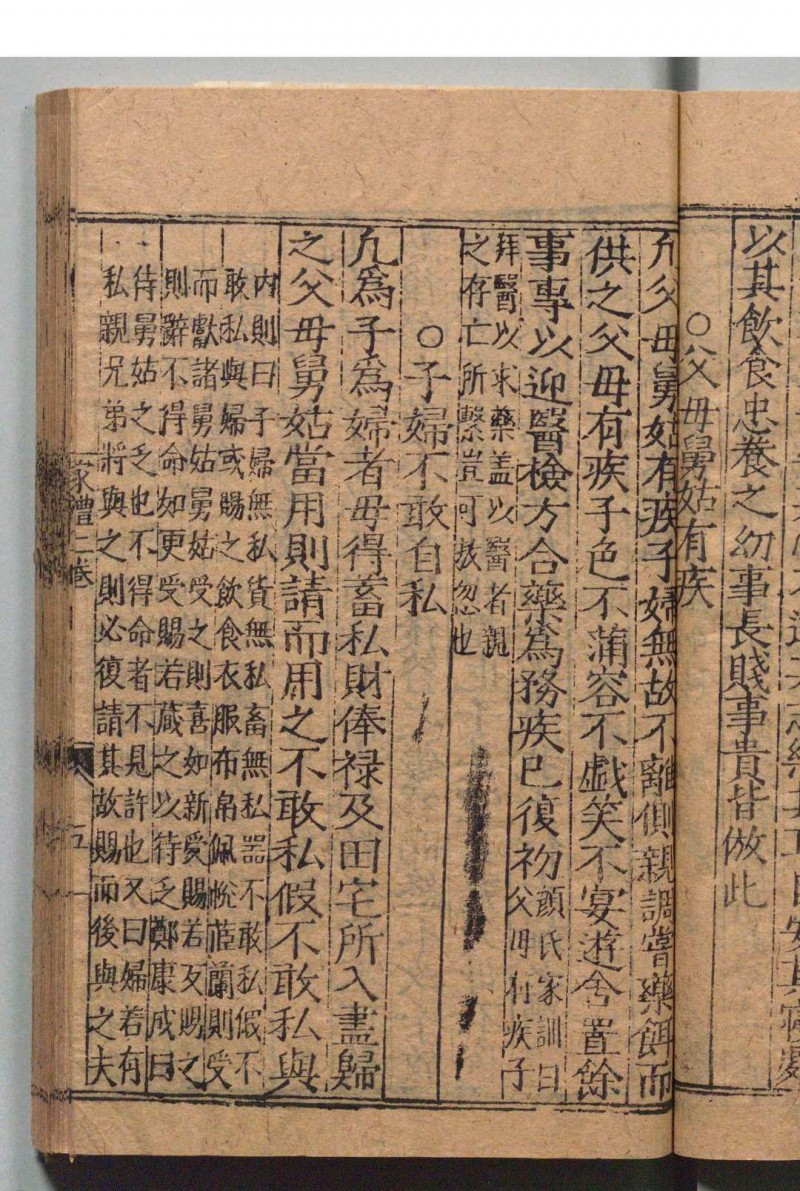 以其飲食忠養之幼事長賤事貴皆倣此
○父母舅姑有疾
凢父母舅姑有疾子婦無故不離側親調嘗藥餌而
供之父母有疾子色不蒲容不戯笑不宴遊舍置餘
事專以迎醫檢方合藥爲務疾已復初
顔氏家訓曰
父母有疾子
拜醫以求藥盖以醫者親
之存亡所繫豈可敖忽也
○子婦不敢自私
凢爲子爲婦者毋得蓄私財俸禄及田宅所入盡歸
之父母舅姑當用則請而用之不敢私假不敢私與
内則曰子婦無私貨無私畜無私噐不敢私假不
敢私與婦或賜之飲食衣服布帛佩帨茝蘭則受
而獻諸舅姑舅姑受之則喜如新受賜若反賜之
則辭不得命如更受賜若藏之以待乏鄭康成曰
待舅姑之乏也不得命者不見許也又曰婦若有
私親兄弟將與之則必復請其故賜而後與之夫
家禮二卷
五